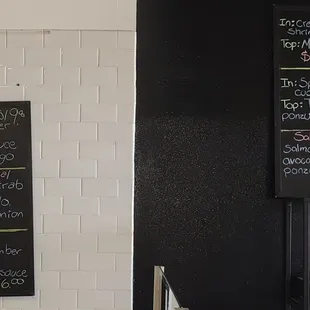 19.8
uce
go
crab
nion
mber
sauce
6.00
In: Cre
Shrim
Top: M
$
In: Sp
cuc
Top: T
ponzu
Sa
Salmo
avoca
ponz